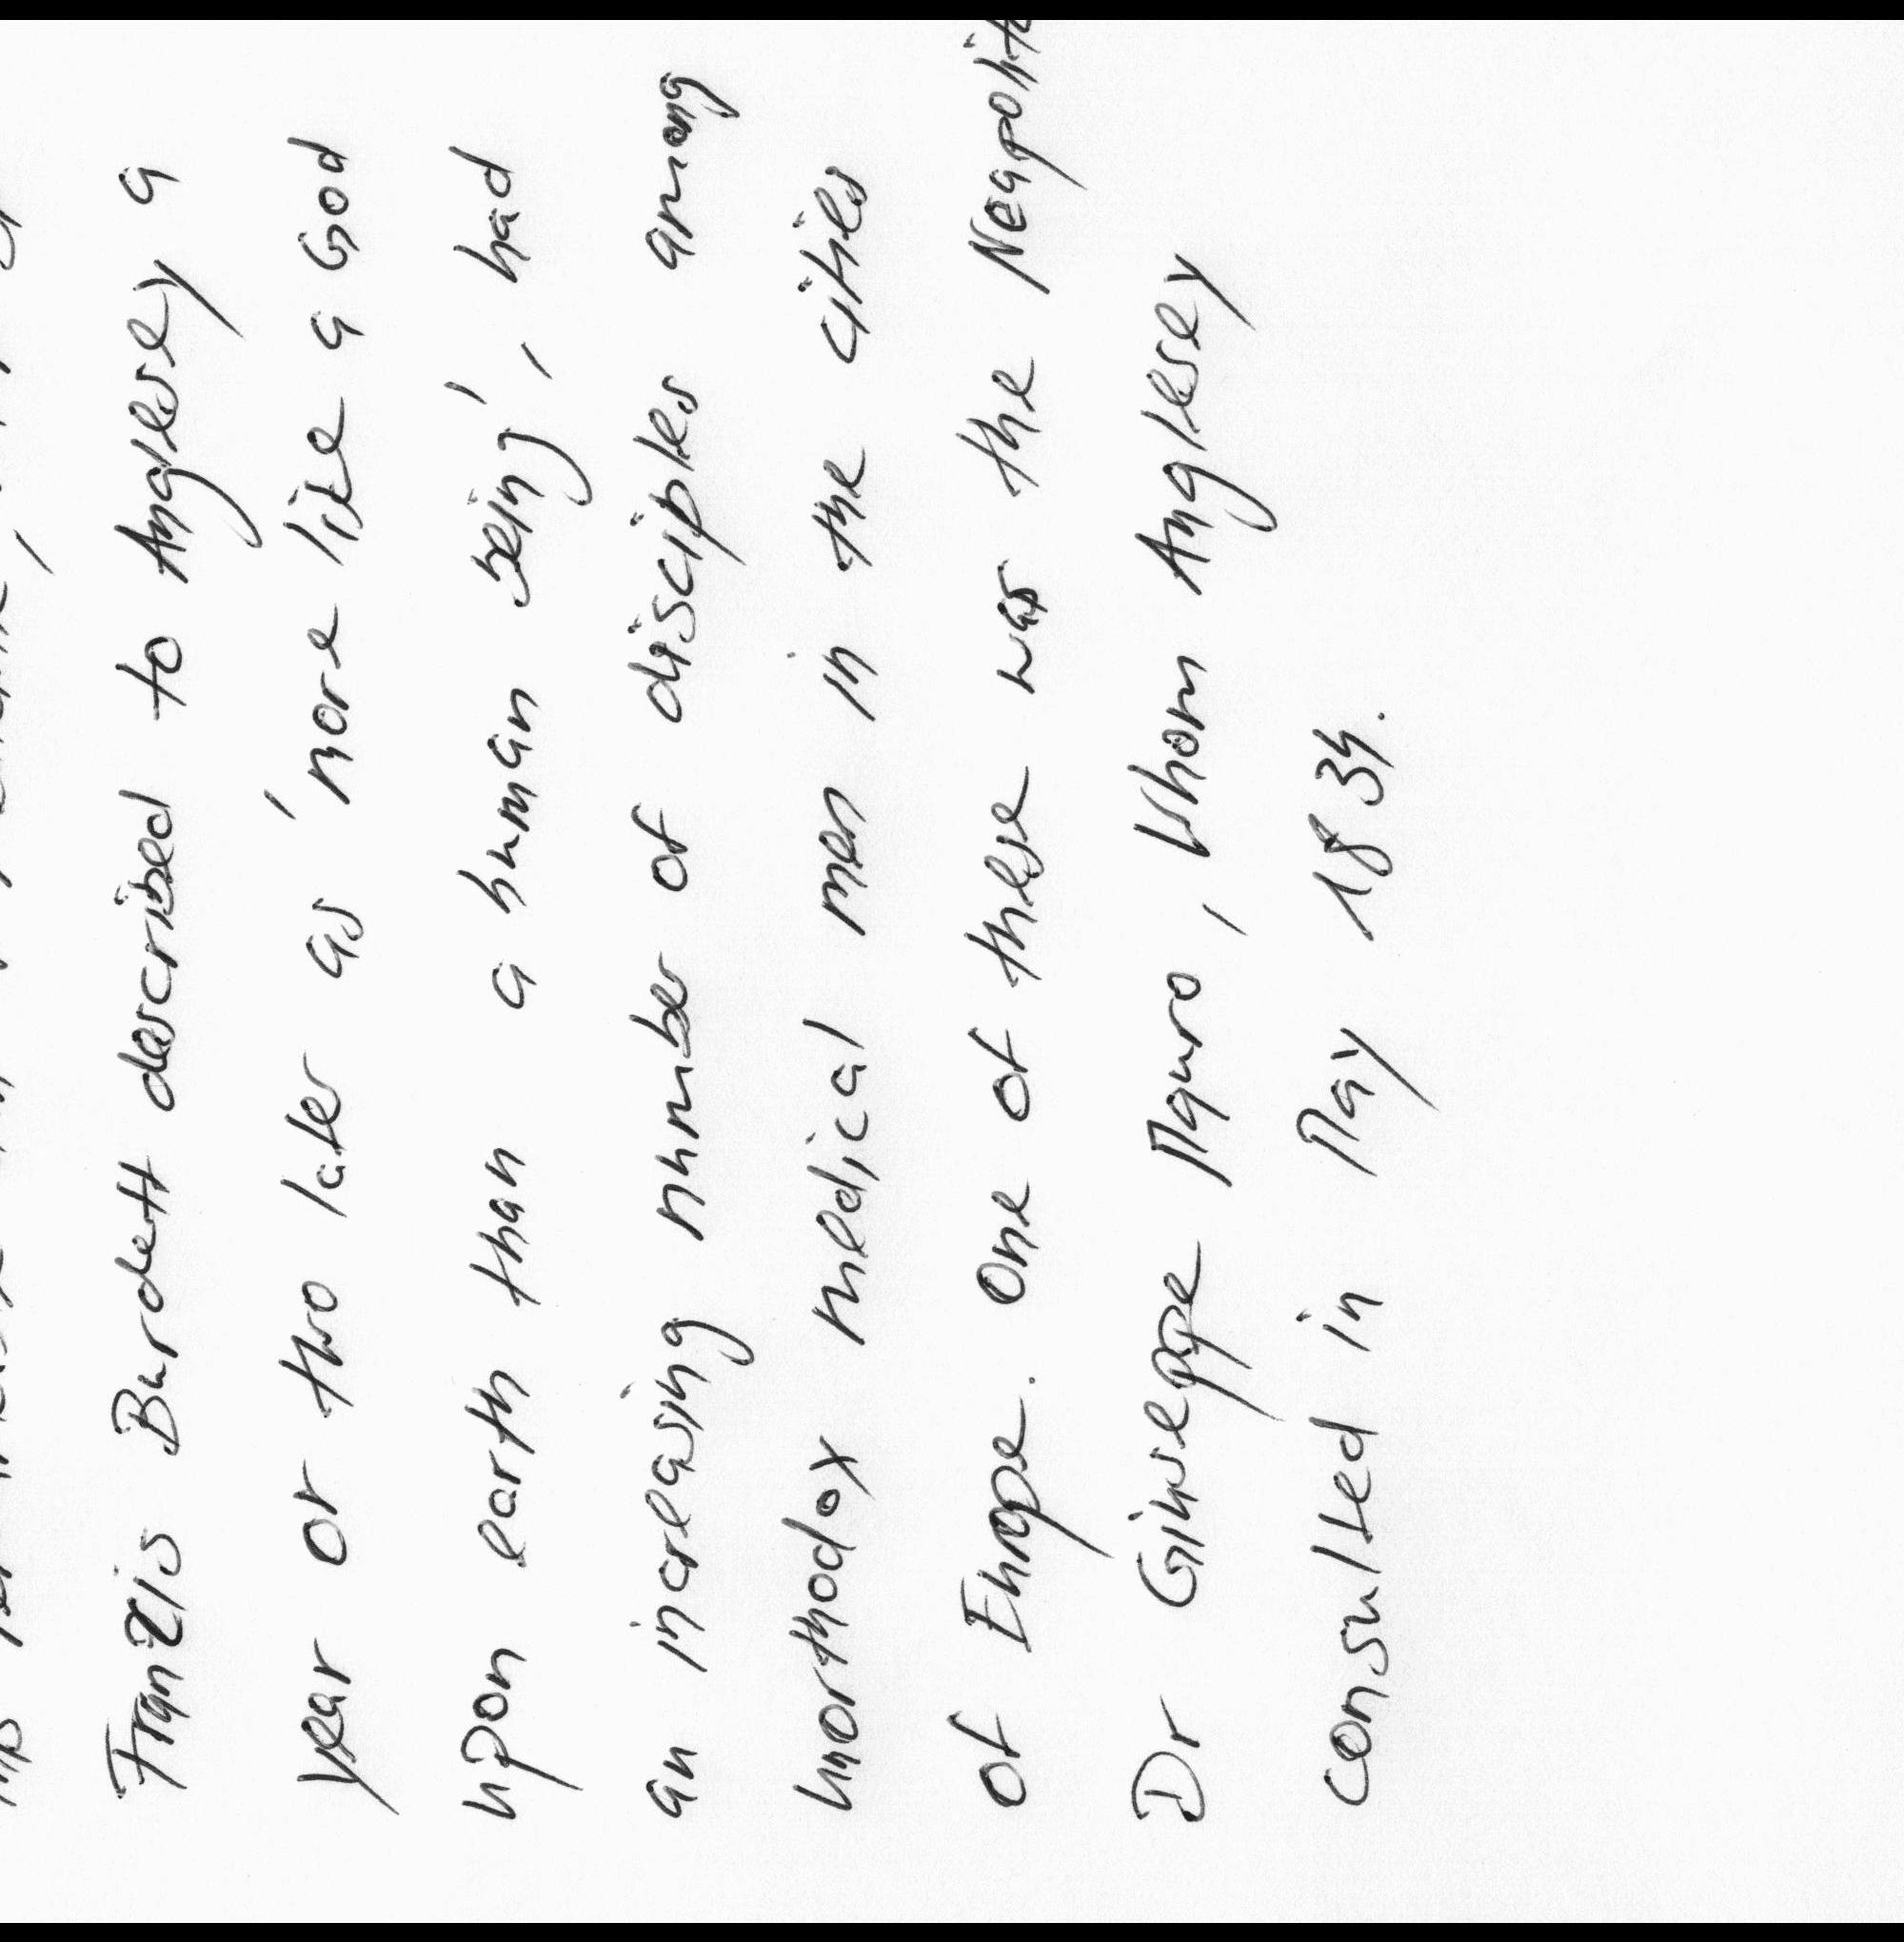 Francis Burdett described to Anglesey a
year or two later as 'more like a God
upon earth than a human being', had
an increasing number of disciples among
unorthodox medical men in the cities
of Europe. One of these was the
Dr Giuseppe Mauro, Whom Anglesey
consulted in May 1834.